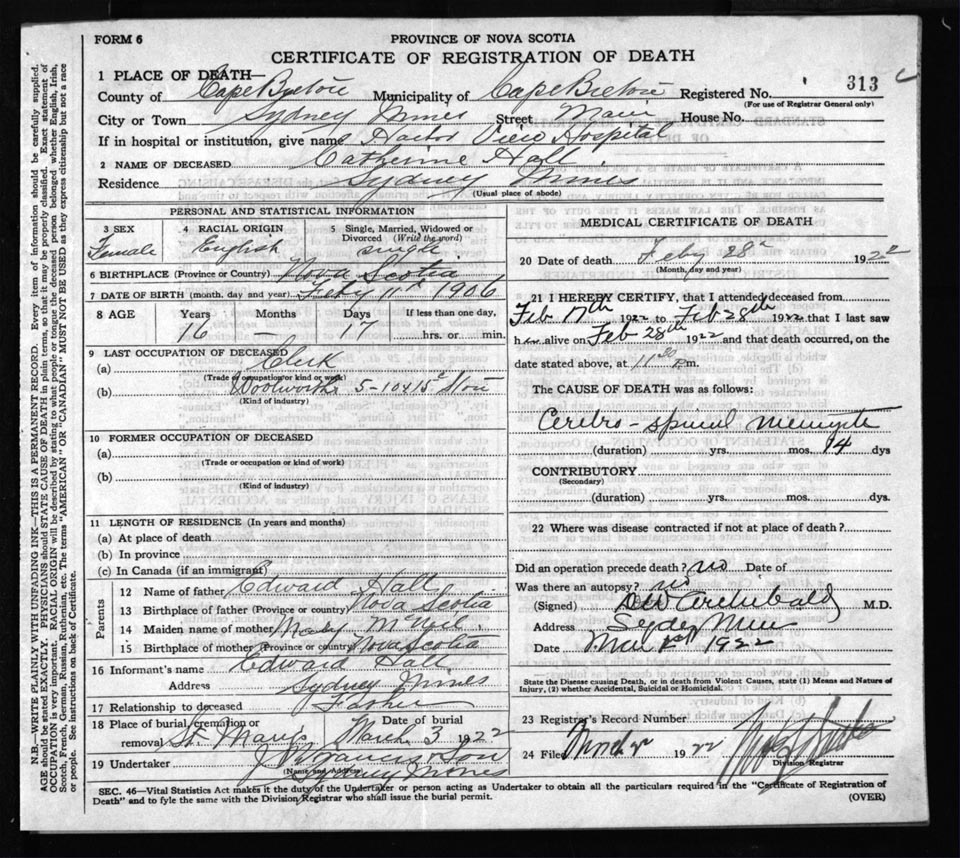 FORM 6
PROVINCE OF NOVA SCOTIA
CERTIFICATE OF REGISTRATION OF DEATH
1 PLACE OF DEATH—
County of Cape Breton Municipality of Cape Breton Registered No. 313
(For use of Registrar General only)
City or Town Sydney Mines Street Main House No.
If in hospital or institution, give name Harbor View Hospital
2 NAME OF DECEASED Catherine Hall
Residence Sydney Mines
(Usual place of abode)
PERSONAL AND STATISTICAL INFORMATION
3 SEX 4 RACIAL ORIGIN 5 Single, Married, Widowed or Divorced (Write the word)
Female English single
6 BIRTHPLACE (Province or Country) Nova Scotia
7 DATE OF BIRTH (month, day and year) Feby 11th 1906
8 AGE Years Months Days If less than one day,
16 — 17 hrs. or min.
9 LAST OCCUPATION OF DECEASED
(a) Clerk
(Trade or occupation or kind of work)
(b) Woolworths 5-10 & 15c Store
(Kind of industry)
10 FORMER OCCUPATION OF DECEASED
(a)
(Trade or occupation or kind of work)
(b)
(Kind of industry)
11 LENGTH OF RESIDENCE (In years and months)
(a) At place of death
(b) In province
(c) In Canada (if an immigrant)
Parents
12 Name of father Edward Hall
13 Birthplace of father (Province or country) Nova Scotia
14 Maiden name of mother Mary McNeil
15 Birthplace of mother (Province or country) Nova Scotia
16 Informant's name Edward Hall
Address Sydney Mines
17 Relationship to deceased Father
18 Place of burial, cremation or removal St. Mary's Date of burial March 3 1922
19 Undertaker Son
(Name and Address) Sydney Mines
MEDICAL CERTIFICATE OF DEATH
20 Date of death Feby 28th 1922
(Month, day and year)
21 I HEREBY CERTIFY, that I attended deceased from
Feb 17th 1922 to Feb 28th 1922 that I last saw
her alive on Feb 28th 1922 and that death occurred, on the
date stated above, at 11 P.m.
The CAUSE OF DEATH was as follows:
Cerebro-spinal
(duration) yrs. mos. 14 dys
CONTRIBUTORY
(Secondary)
(duration) yrs. mos. dys.
22 Where was disease contracted if not at place of death?
Did an operation precede death? no Date of
Was there an autopsy? no
(Signed) Archibald M.D.
Address Sydney Mines
Date Mar 1st 1922
State the Disease causing Death, or in death from Violent Causes, state (1) Means and Nature of Injury, (2) whether Accidental, Suicidal or Homicidal.
23 Registrar's Record Number
24 Filed March 1922
Division Registrar
SEC. 46—Vital Statistics Act makes it the duty of the Undertaker or person acting as Undertaker to obtain all the particulars required in the "Certificate of Registration of
Death" and to fyle the same with the Division Registrar who shall issue the burial permit.
(OVER)
N.B.—WRITE PLAINLY WITH UNFADING INK—THIS IS A PERMANENT RECORD. Every item of information should be carefully supplied.
AGE should be stated EXACTLY. PHYSICIANS should STATE CAUSE OF DEATH in plain terms, so that it may be properly classified. Exact statement of
OCCUPATION is very important. RACIAL ORIGIN will be described by stating to what people or tongue the deceased person belonged whether English, Irish,
Scotch, French, German, Russian, Ruthenian, etc. The terms "AMERICAN" OR "CANADIAN" MUST NOT BE USED as they express citizenship but not a race
or people. See instructions on back of Certificate.